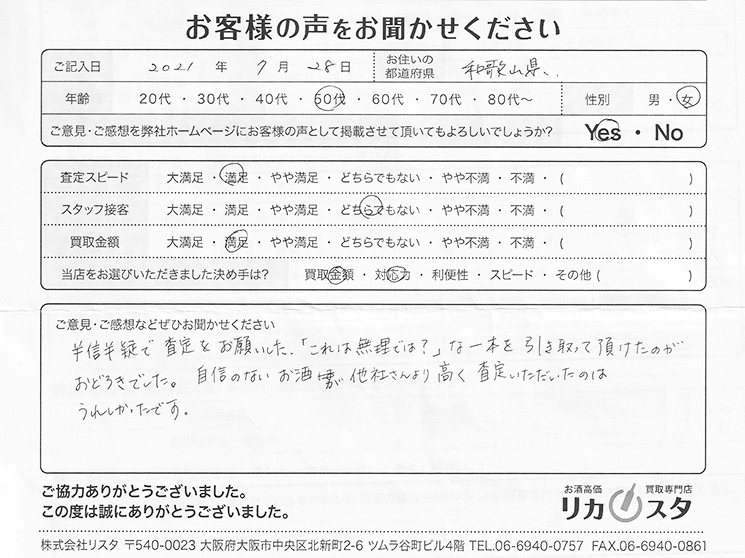 お客様の声をお聞かせください
ご記入日 2021 年 7 月 28 日 お住いの都道府県 和歌山県
年齢 20代 ・ 30代 ・ 40代 ・ 50代 ・ 60代 ・ 70代 ・ 80代～ 性別 男 ・ 女
ご意見・ご感想を弊社ホームページにお客様の声として掲載させて頂いてもよろしいでしょうか? Yes ・ No
査定スピード 大満足 ・ 満足 ・ やや満足 ・ どちらでもない ・ やや不満 ・ 不満 ・ ( )
スタッフ接客 大満足 ・ 満足 ・ やや満足 ・ どちらでもない ・ やや不満 ・ 不満 ・ ( )
買取金額 大満足 ・ 満足 ・ やや満足 ・ どちらでもない ・ やや不満 ・ 不満 ・ ( )
当店をお選びいただきました決め手は? 買取金額 ・ 対応力 ・ 利便性 ・ スピード ・ その他 ( )
ご意見・ご感想などぜひお聞かせください
半信半疑で査定をお願いした.「これは無理では?」な一本を引き取って頂けたのが
おどろきでした。自信のないお酒が他社さんより高く査定いただいたのは
うれしかったです。
ご協力ありがとうございました。
この度は誠にありがとうございました。
お酒高価 買取専門店
リカスタ
株式会社リスタ 〒540-0023 大阪府大阪市中央区北新町2-6 ツムラ谷町ビル4階 TEL.06-6940-0757 FAX.06-6940-0861